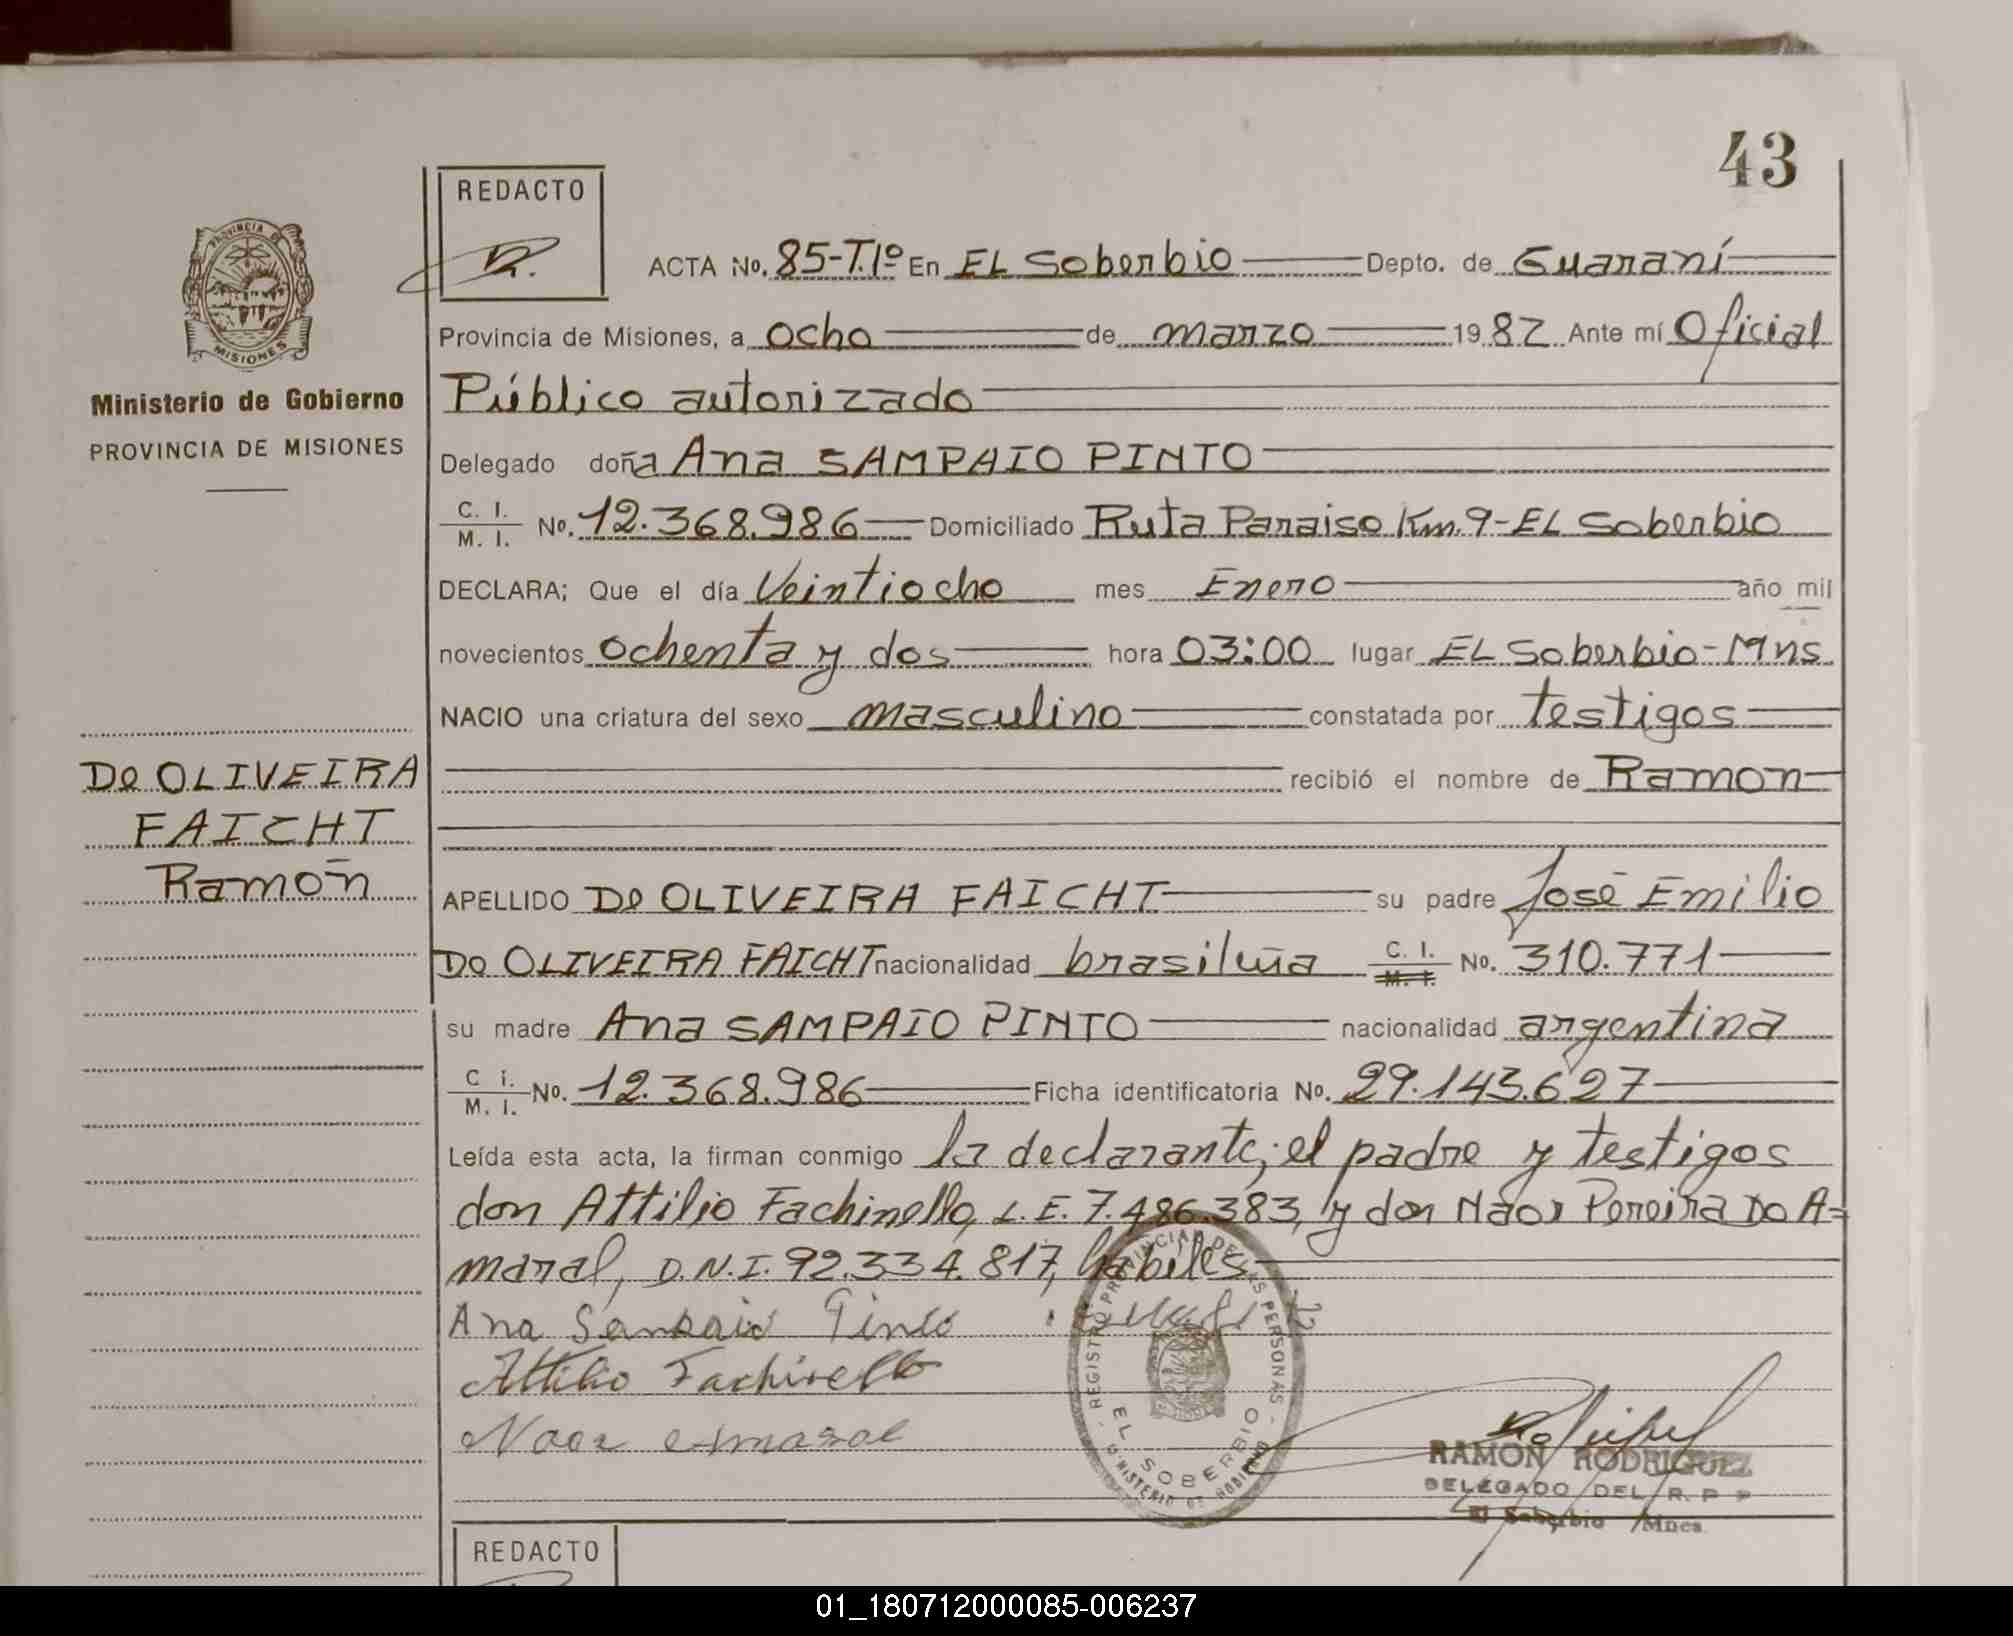 43
REDACTO
PROVINCIA DE
MISIONES
ACTA No. 85-T.1º En EL Soberbio Depto. de Guaraní
Provincia de Misiones, a ocho de marzo 1982 Ante mí Oficial
Ministerio de Gobierno
Público autorizado
PROVINCIA DE MISIONES
Delegado doña Ana SAMPAIO PINTO
C. I.
M. I. No. 12.368.986 Domiciliado Ruta Paraiso Km. 9-EL Soberbio
DECLARA; Que el día Veintiocho mes Enero año mil
novecientos ochenta y dos hora 03:00 lugar EL Soberbio-Mns
NACIO una criatura del sexo masculino constatada por testigos
recibió el nombre de Ramon
De OLIVEIRA
FAICHT
Ramon
APELLIDO De OLIVEIRA FAICHT su padre José Emilio
Do OLIVEIRA FAICHT nacionalidad brasileña C. I. M. I. No. 310.771
su madre Ana SAMPAIO PINTO nacionalidad argentina
C i.
M. I. No. 12.368.986 Ficha identificatoria No. 29.143.627
Leída esta acta, la firman conmigo la declarante; el padre y testigos
don Attilio Fachinello, L.E. 7.486.383, y don Naor Pereira Do A=
maral, D.N.I. 92.334.817, habiles
Ana Sampaio Pinto
Attilio Fachinello
Naor Amaral
REGISTRO PROVINCIAL DE LAS PERSONAS
EL SOBERBIO
MINISTERIO DE GOBIERNO
RAMON RODRIGUEZ
DELEGADO DEL R. P. P
El Soberbio Mnes.
REDACTO
01_180712000085-006237